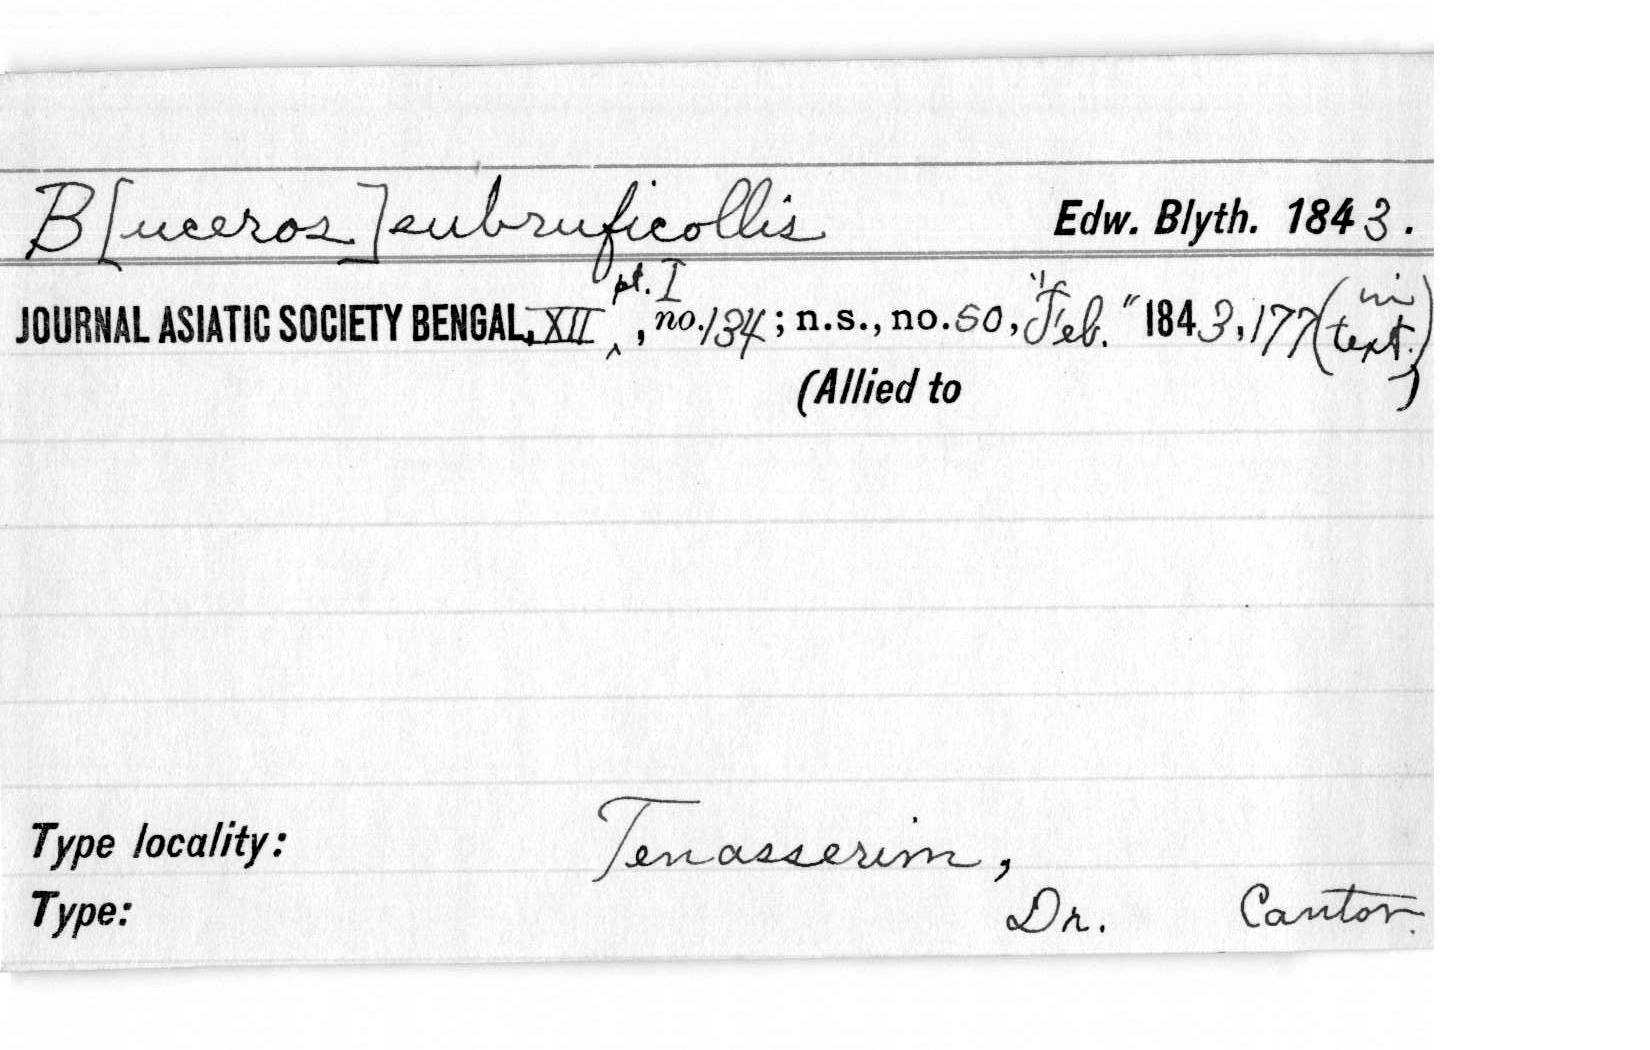 B[uceros] subruficollis Edw. Blyth. 1843.
pt. I
JOURNAL ASIATIC SOCIETY BENGAL, XII ‸, no. 134; n.s., no. 50, "Feb." 1843, 177 (in text.)
(Allied to )
Type locality: Tenasserim,
Type: Dr. Cantor.